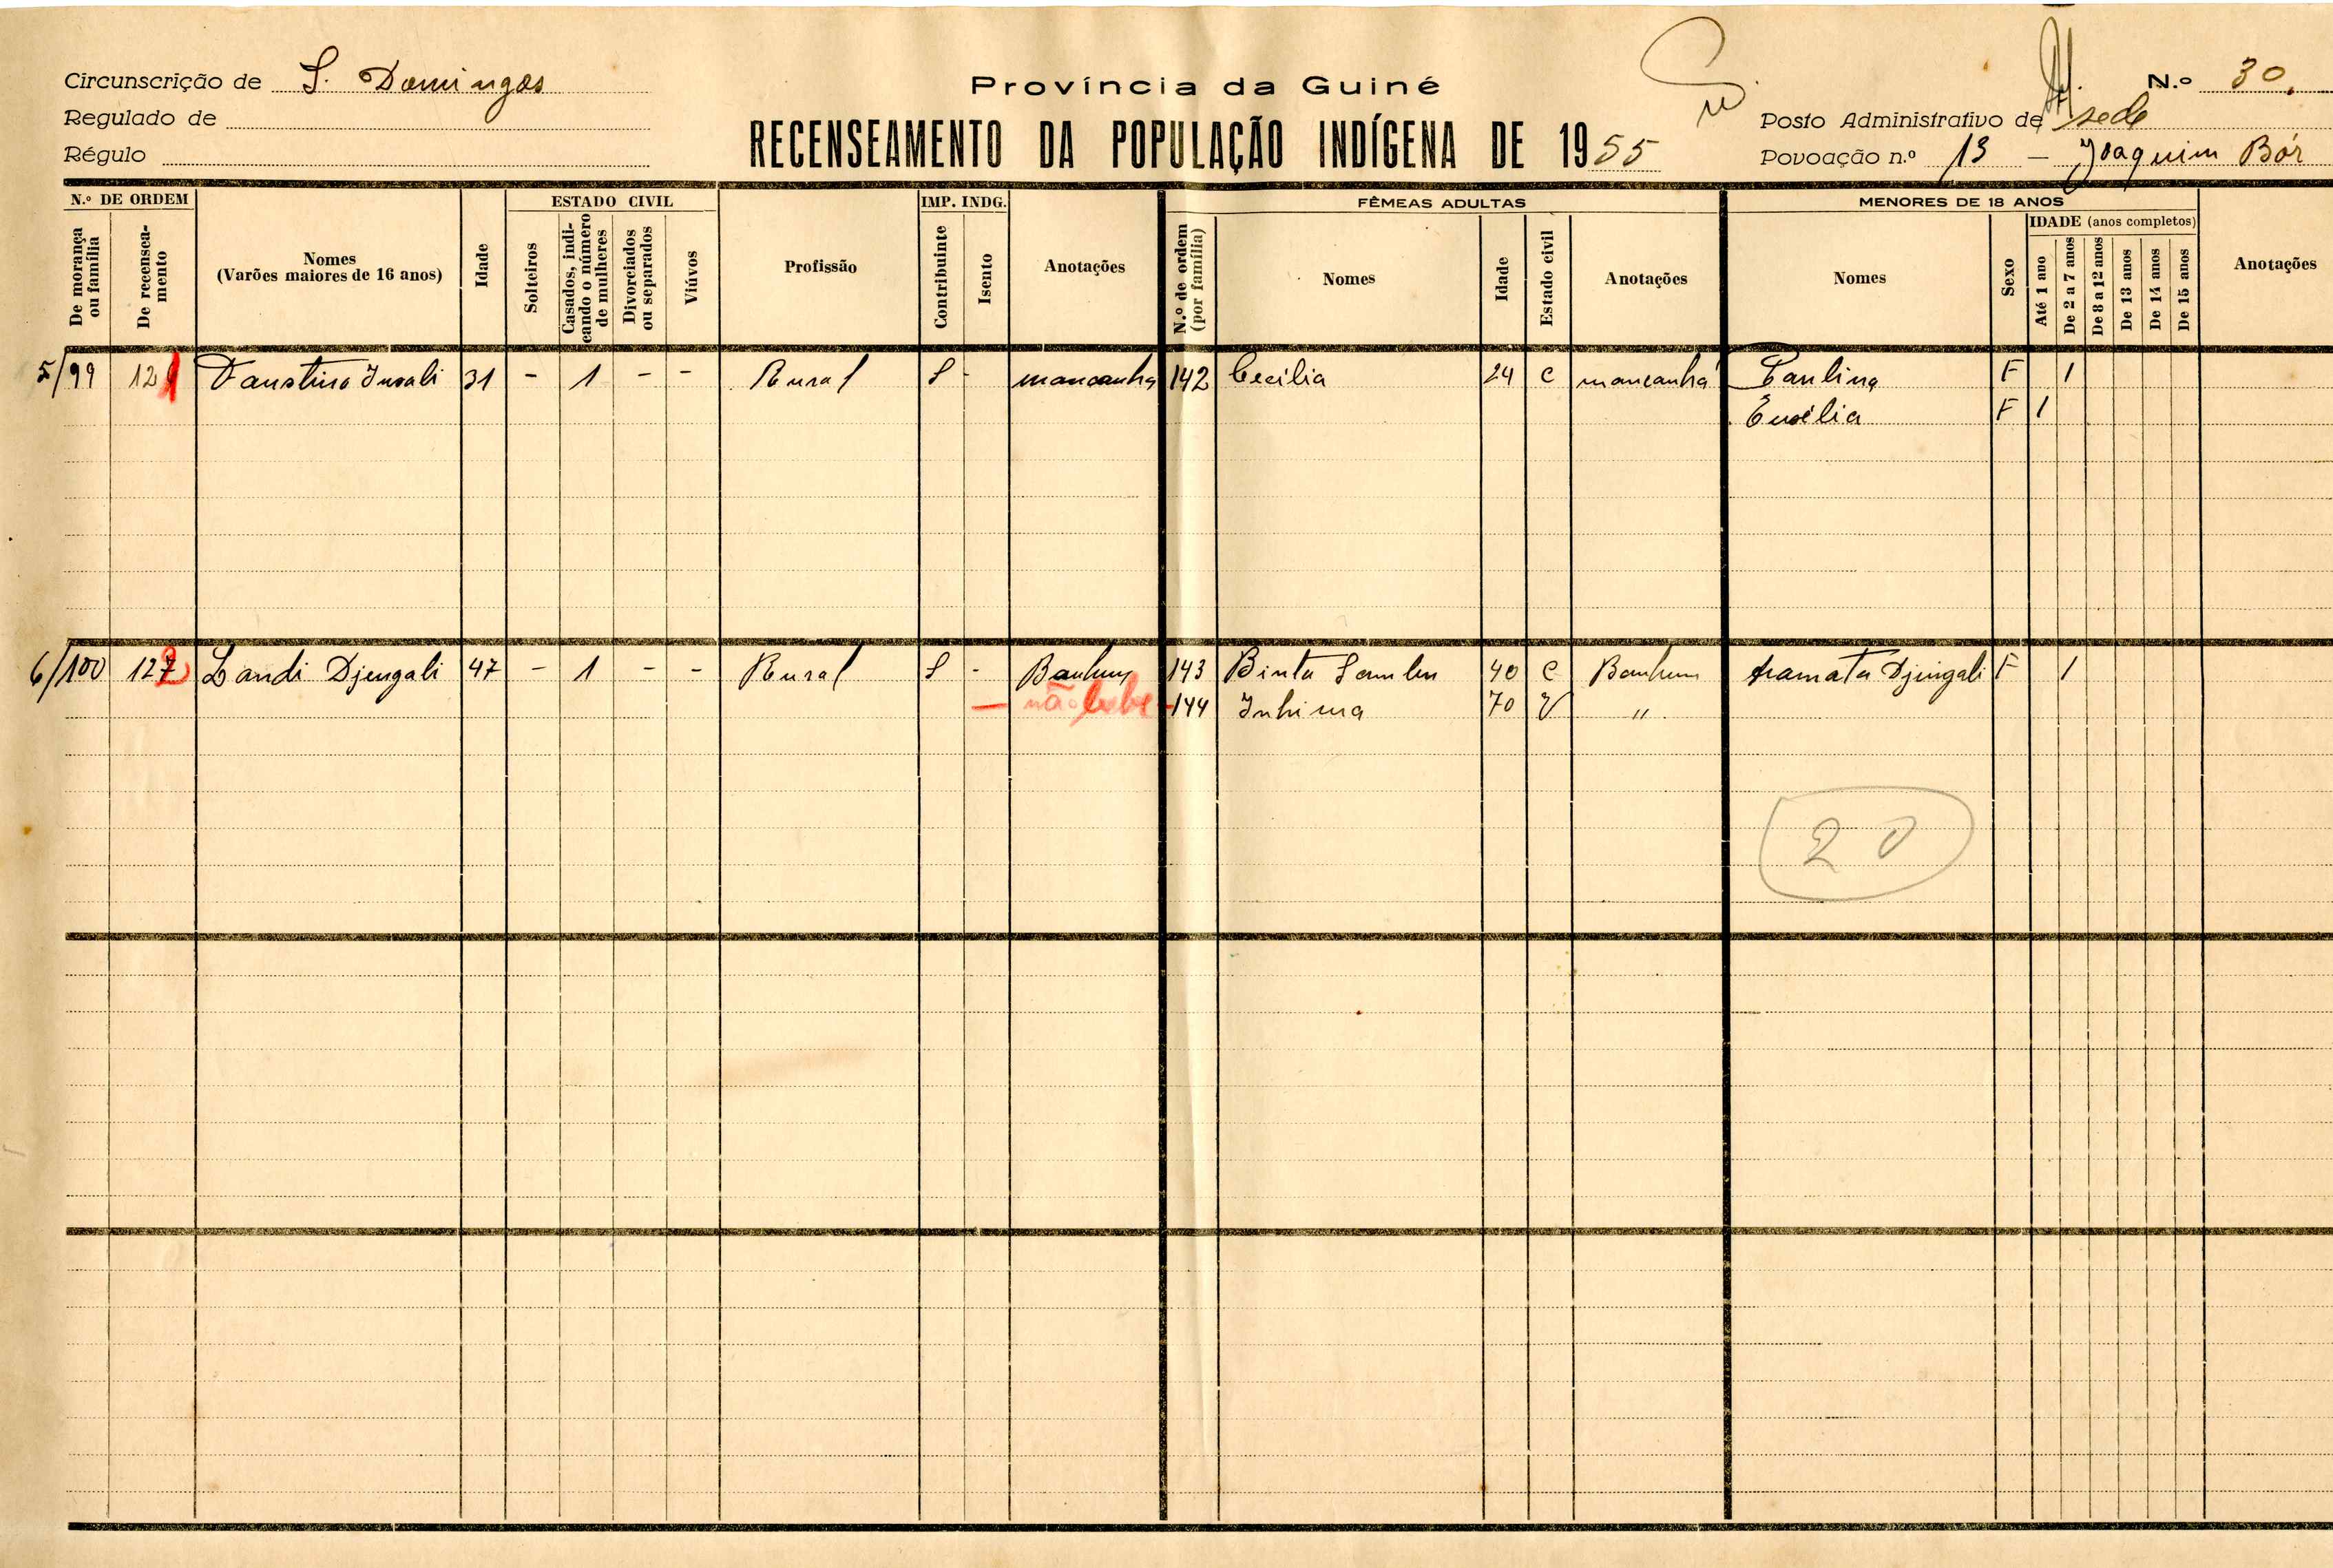 Circunscrição de S. Domingos
Regulado de
Régulo
Província da Guiné
RECENSEAMENTO DA POPULAÇÃO INDÍGENA DE 1955
N.º 30.
Posto Administrativo de sede
Povoação n.º 13 — Joaquim Bór
N.º DE ORDEM
De morança ou família
De recenseamento
Nomes
(Varões maiores de 16 anos)
Idade
ESTADO CIVIL
Solteiros
Casados, indicando o número de mulheres
Divorciados ou separados
Viúvos
Profissão
IMP. INDG.
Contribuinte
Isento
Anotações
FÊMEAS ADULTAS
N.º de ordem (por família)
Nomes
Idade
Estado civil
Anotações
MENORES DE 18 ANOS
Nomes
Sexo
IDADE (anos completos)
Até 1 ano
De 2 a 7 anos
De 8 a 12 anos
De 13 anos
De 14 anos
De 15 anos
Anotações
5/99 121 Faustino 31 - 1 - - Rural S - mancanha 142 Cecilia 24 C mancanha Paulina F 1
F 1
6/100 122 Landi Djengali 47 - 1 - - Rural S - Banhum 143 Binta 40 C Banhum Djengali F 1
— não bebe - 144 70 V "
20